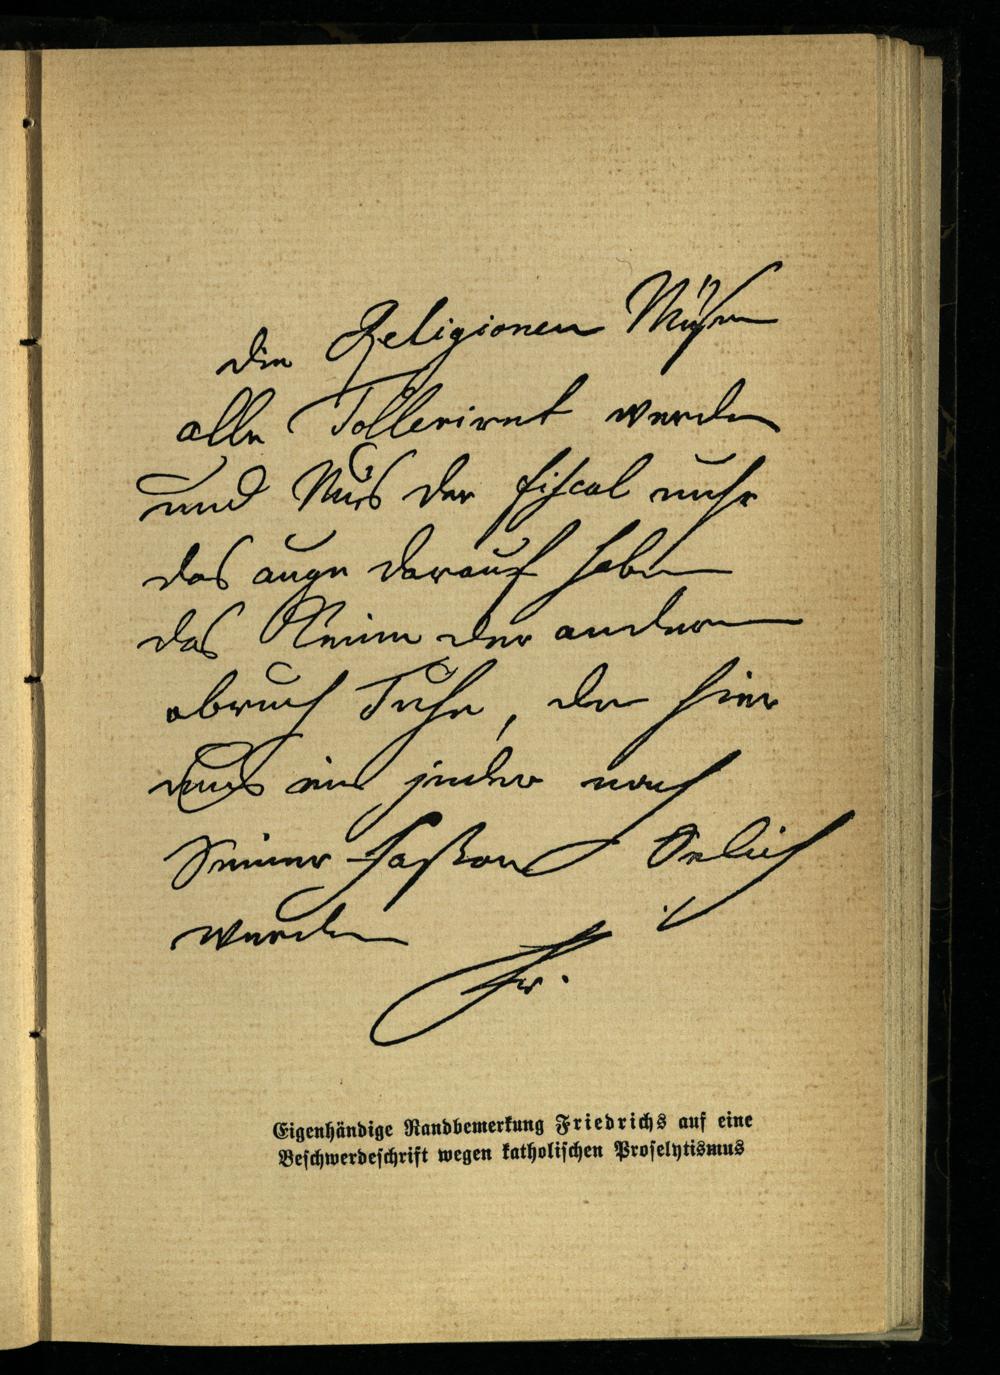 die Religionen Müsen
alle Tolleriret werden
und Mus der fiscal nuhr
das auge darauf haben
das Keine der anderen
abruch Tuhe, den hier
mus ein jeder nach
Seiner Faßon Selich
werden
Fr.
Eigenhändige Randbemerkung Friedrichs auf eine
Beschwerdeschrift wegen katholischen Proselytismus